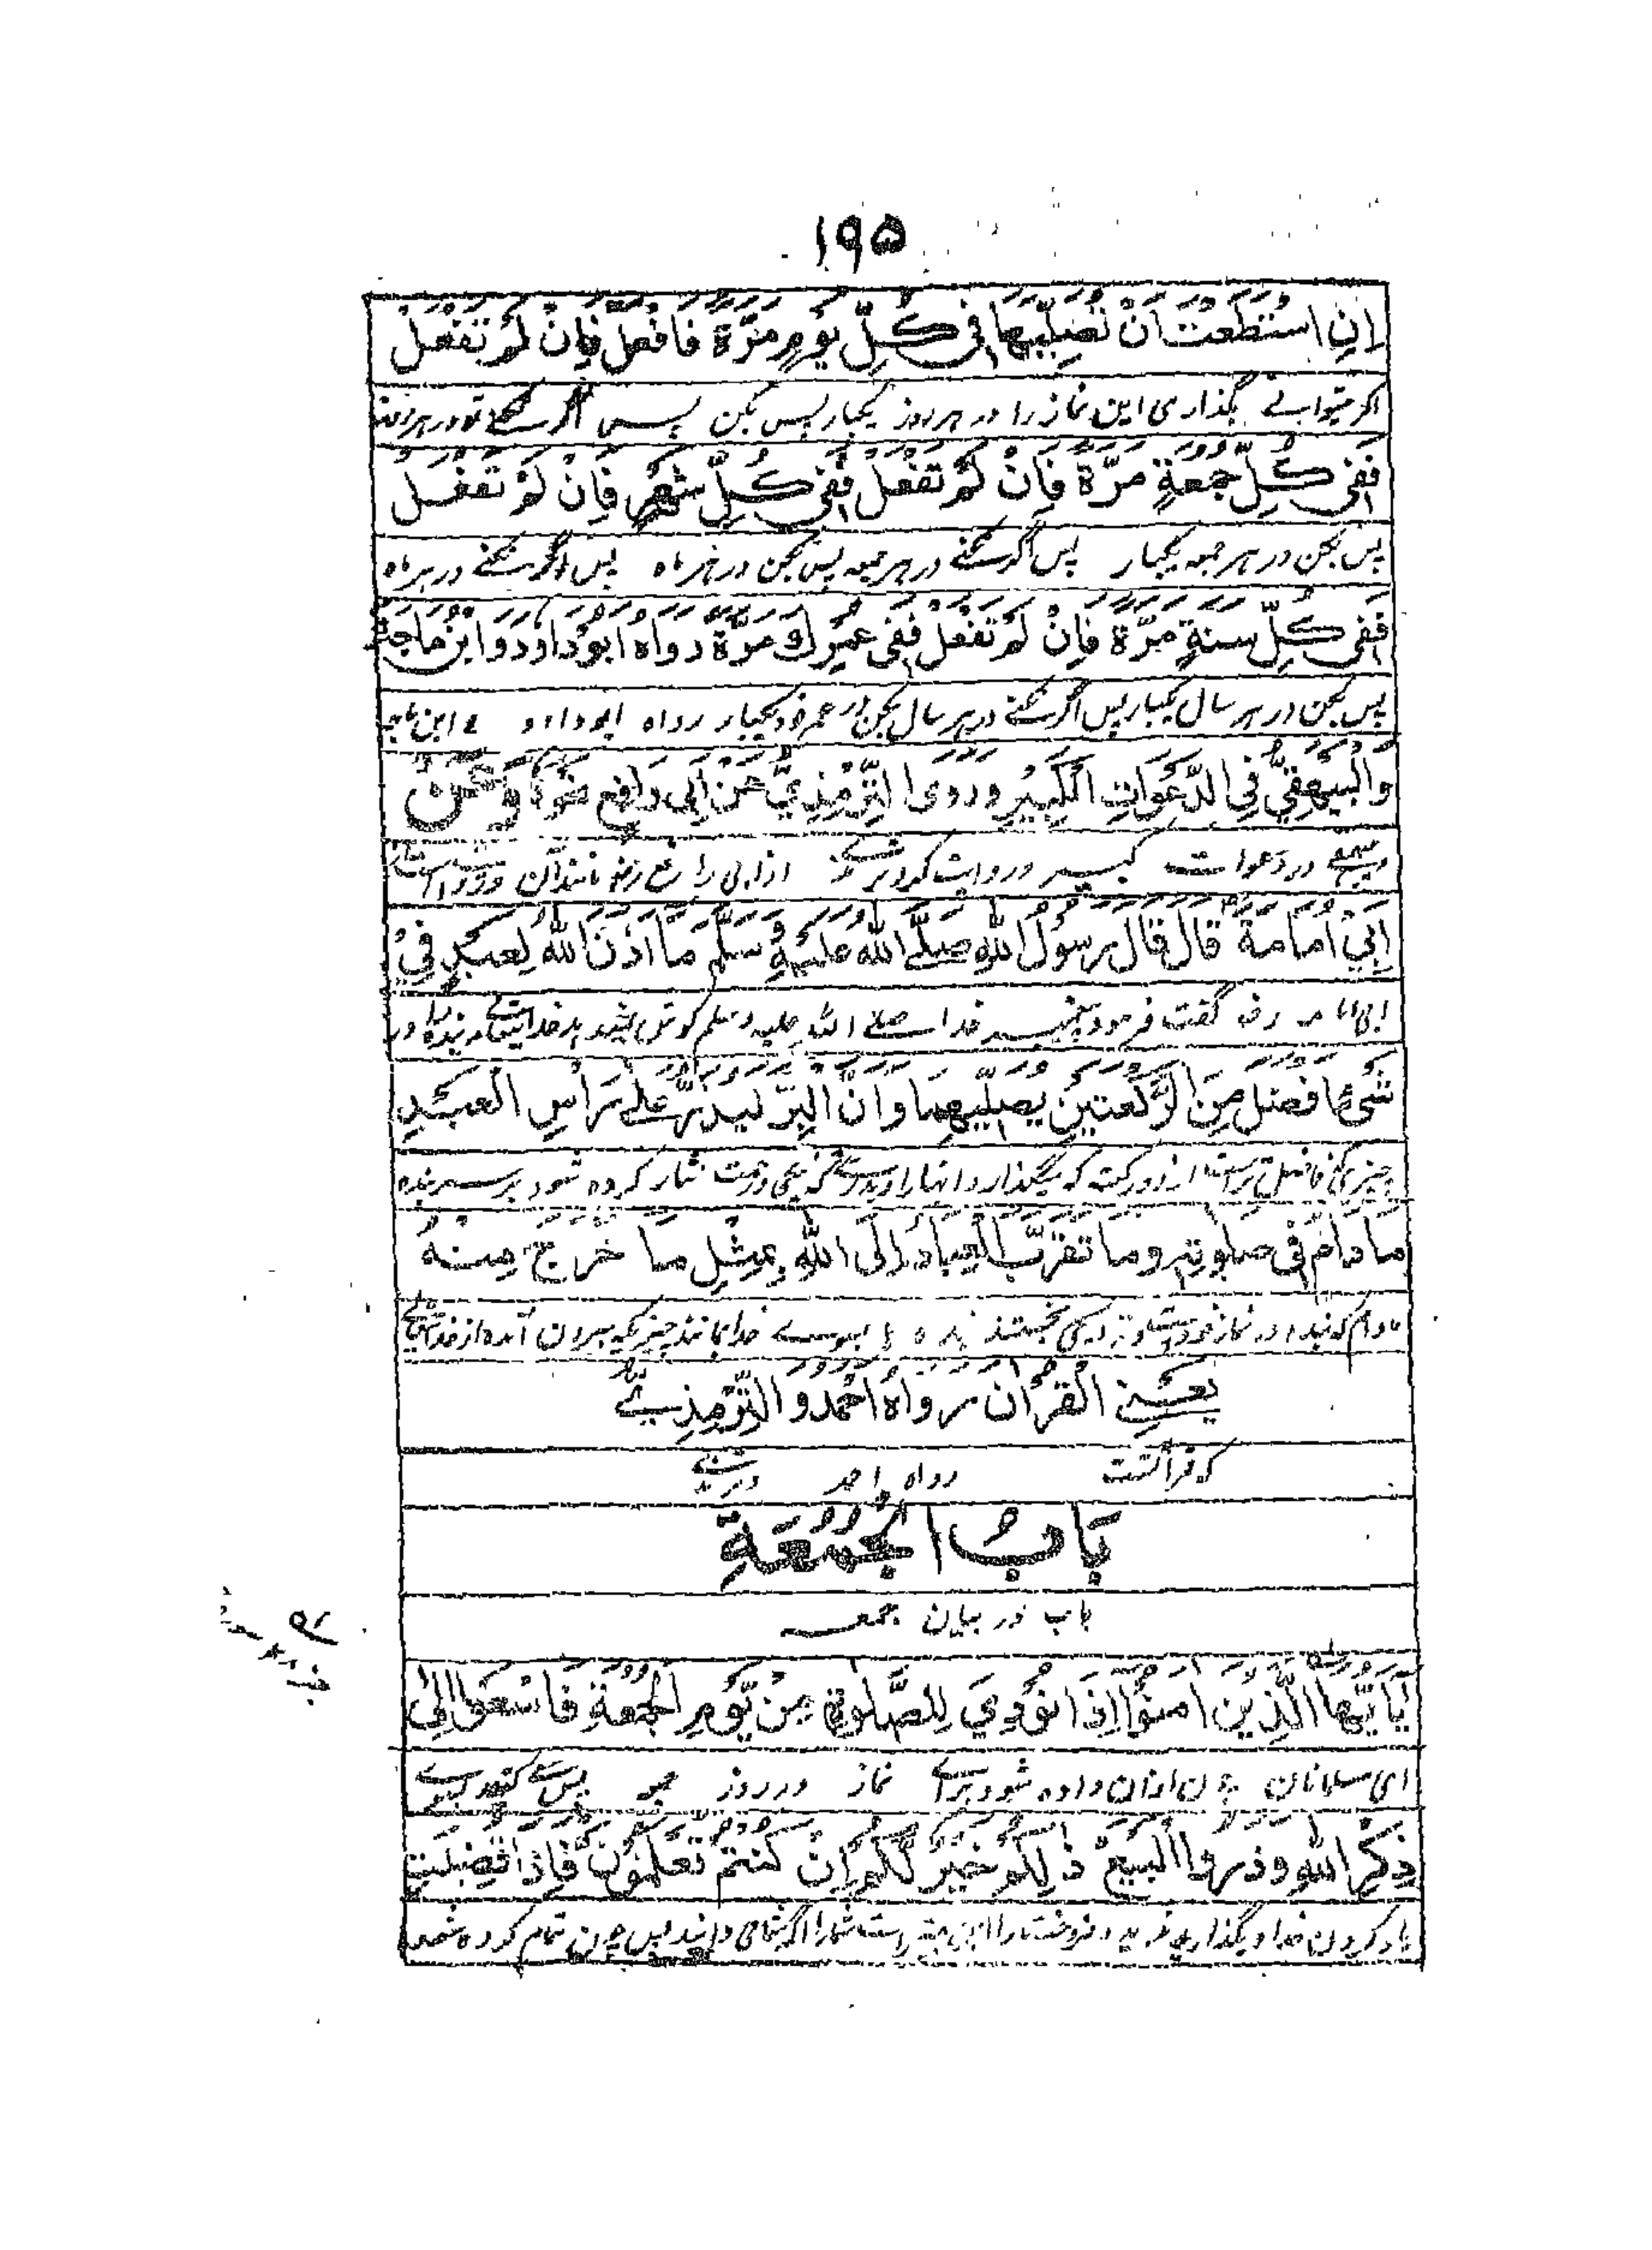 ۱۹۵
اِنِ اسْتَطَعْتَ اَنْ تُصَلِّيَهَا فِیْ كُلِّ يَوْمٍ مَرَّةً فَافْعَلْ فَاِنْ لَمْ تَفْعَلْ
اگر میتوانے بگذاری این نماز را در هر روز یکبار پس بکن پس اگر نکنے تو در هر روز
فَفِیْ كُلِّ جُمُعَةٍ مَرَّةً فَاِنْ لَمْ تَفْعَلْ فَفِیْ كُلِّ شَهْرٍ فَاِنْ لَمْ تَفْعَلْ
پس بکن در هر جمعه یکبار پس اگر نکنے در هر جمعه پس بکن در هر ماه پس اگر نکنے در هر ماه
فَفِیْ كُلِّ سَنَةٍ مَرَّةً فَاِنْ لَمْ تَفْعَلْ فَفِیْ عُمُرِكَ مَرَّةً رَوَاهُ اَبُوْدَاوُدَ وَابْنُ مَاجَةَ
پس بکن در هر سال یکبار پس اگر نکنے در هر سال بکن در عمر خود یکبار رواه ابو داؤد و ابن ماجه
وَالْبَيْهَقِيُّ فِی الدَّعَوَاتِ الْكَبِيْرِ وَرَوَى التِّرْمِذِيُّ عَنْ اَبِیْ رَافِعٍ نَحْوَهُ وَعَنْ
در دعوات کبیر و روایت کرد ترمذے از ابی رافع مانند آن
اَبِیْ اُمَامَةَ قَالَ قَالَ رَسُوْلُ اللهِ صَلَّى اللهُ عَلَيْهِ وَسَلَّمَ مَا اَذِنَ اللهُ لِعَبْدٍ فِیْ
ابی امامه رض گفت فرمود پیغمبر خدا صلے الله علیه وسلم گوش خدا در
شَیْءٍ اَفْضَلَ مِنَ الرَّكْعَتَيْنِ يُصَلِّيْهِمَا وَاِنَّ الْبِرَّ لَيُذَرُّ عَلٰى رَاْسِ الْعَبْدِ
از دو رکعت که میگذارد آنها را نثار کرده شود بر سر بنده
مَا دَامَ فِیْ صَلٰوتِهٖ وَمَا تَقَرَّبَ الْعِبَادُ اِلَى اللهِ بِمِثْلِ مَا خَرَجَ مِنْهُ
مادام که در نماز بسوے خدا مانند چیزیکه بیرون آمده از
يَعْنِی الْقُرْاٰنَ رَوَاهُ اَحْمَدُ وَالتِّرْمِذِيُّ
که قرآنست رواه احمد وترمذے
بَابُ الْجُمُعَةِ
باب در بیان جمعه
يَاَيُّهَا الَّذِيْنَ اٰمَنُوْا اِذَا نُوْدِیَ لِلصَّلٰوةِ مِنْ يَّوْمِ الْجُمُعَةِ فَاسْعَوْا اِلٰى
ای مسلمانان چون اذان داده شود براے نماز در روز جمعه پس سعے کنید بسوے
ذِكْرِ اللهِ وَذَرُوا الْبَيْعَ ذٰلِكُمْ خَيْرٌ لَّكُمْ اِنْ كُنْتُمْ تَعْلَمُوْنَ فَاِذَا قُضِيَتِ
یاد کردن خدا و بگذارید خرید و فروخت را این شما را اگر میدانید پس چون تمام کرده شود